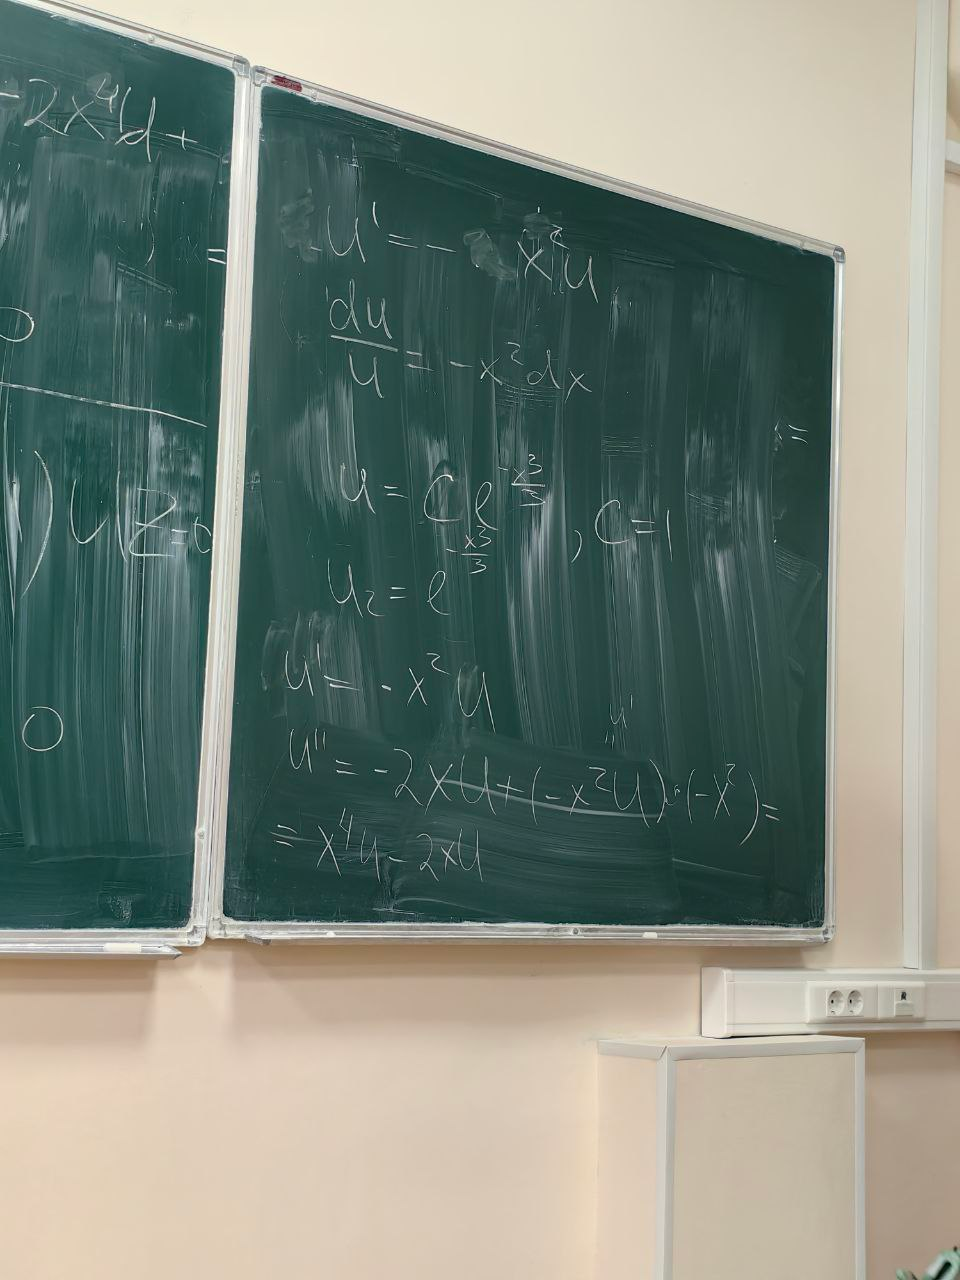 -2x⁴u +
=
0
) u(z=0
0
u' = - x²u
du/u = -x²dx
u = Ce^(-x³/3), C=1
u₂ = e^(-x³/3)
u' = -x²u
u'
"
u'' = -2xu+(-x²u)·(-x²)=
= x⁴u - 2xu